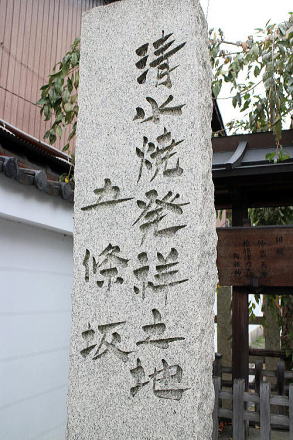 清水焼発祥土地
五條坂